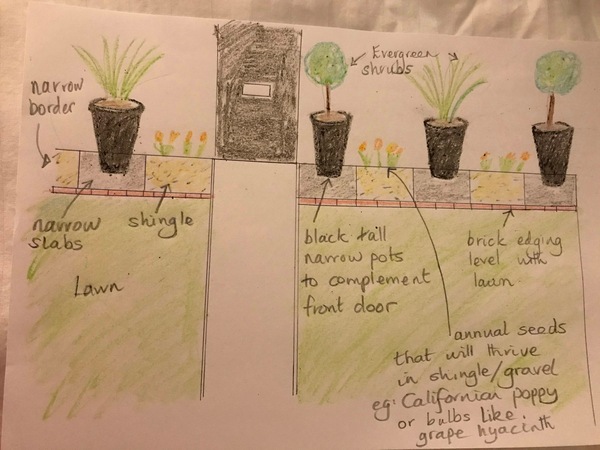 narrow
border
Evergreen
shrubs
narrow
slabs
shingle
Lawn
black tall
narrow pots
to complement
front door
brick edging
level with
lawn.
annual seeds
that will thrive
in shingle/gravel
eg: Californian poppy
or bulbs like
grape hyacinth